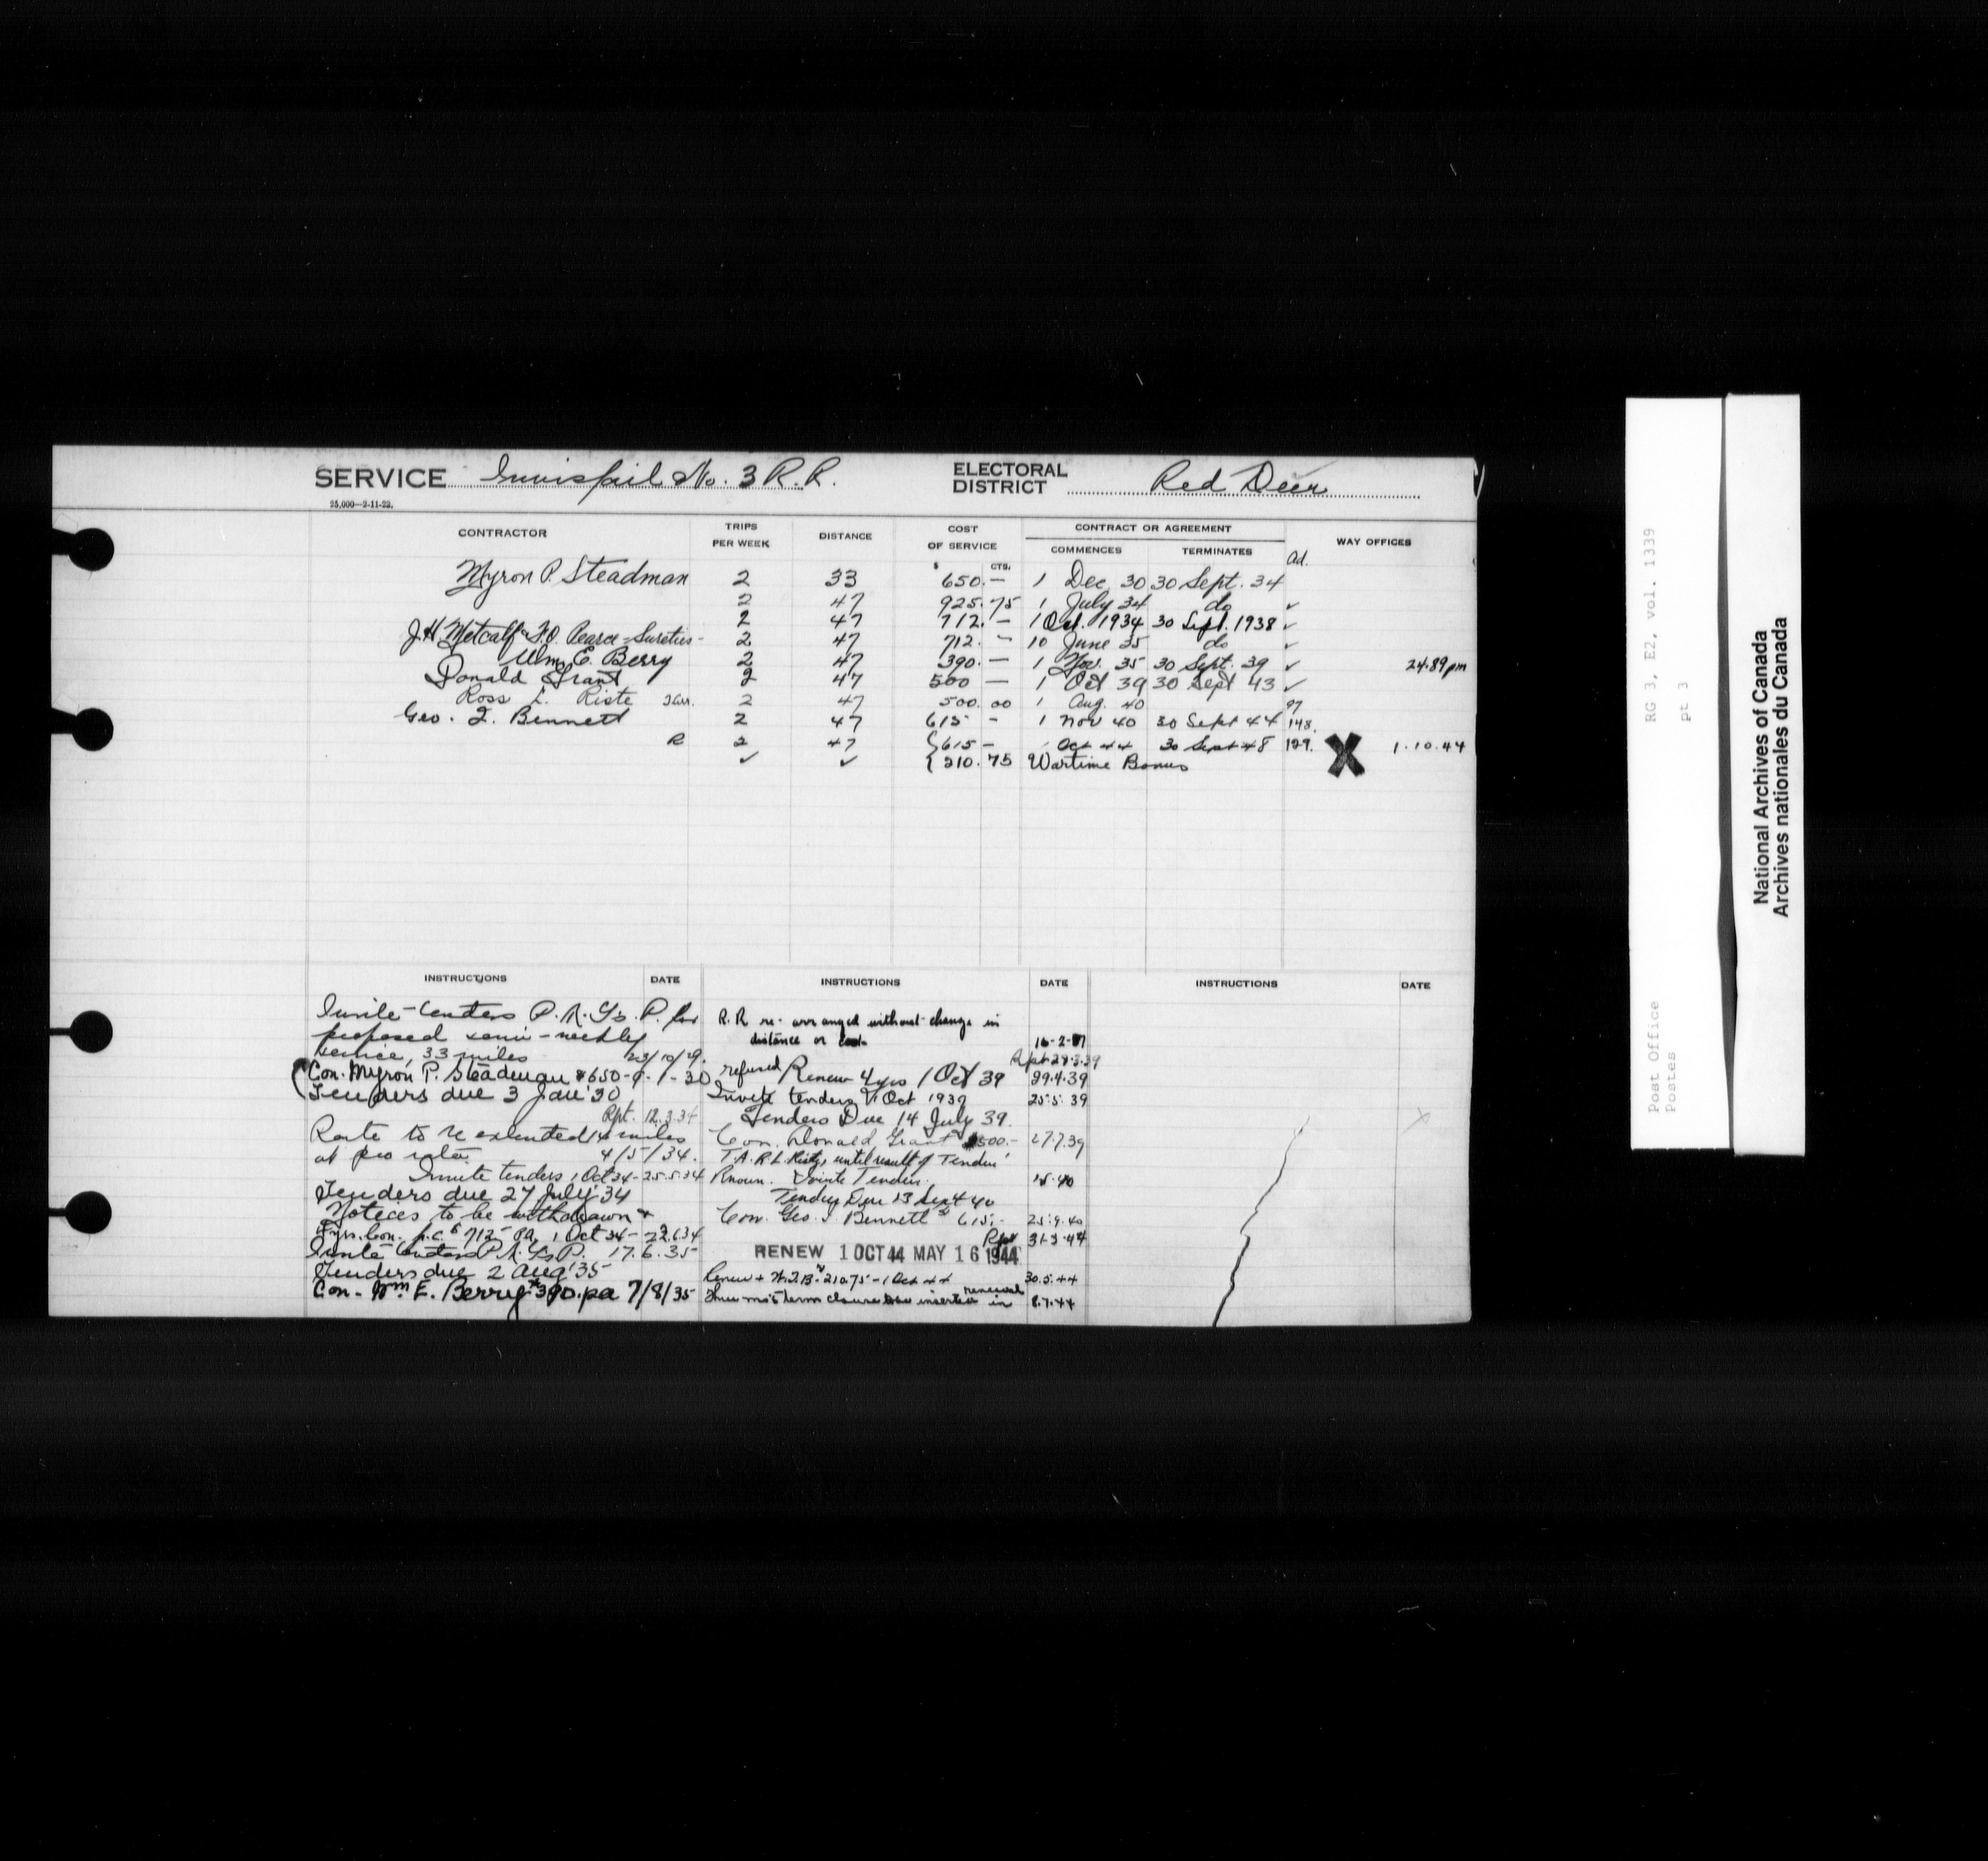 SERVICE Innisfail No. 3 R.R. ELECTORAL DISTRICT Red Deer
25,000—2-11-22.
CONTRACTOR TRIPS PER WEEK DISTANCE COST OF SERVICE CONTRACT OR AGREEMENT WAY OFFICES
COMMENCES TERMINATES Ad.
$ CTS.
Myron P. Steadman 2 33 650.— 1 Dec 30 30 Sept. 34
2 47 925.75 1 July 34 do ✓
2 47 712.— 1 Oct. 1934 30 Sept. 1938 ✓
J.H. Metcalf & F.O. Pearce - Sureties - 2 47 712. - 10 June 35 do ✓
Wm. E. Berry 2 47 390.— 1 Nov. 35 30 Sept. 39 ✓ 24.89 pm
Donald Grant 2 47 500 — 1 Oct 39 30 Sept 43 ✓
Ross L. Riste 2 47 500.00 1 Aug. 40 97
Geo. I. Bennett 2 47 615 - 1 Nov 40 30 Sept 44 148.
R 2 47 615 - 1 Oct 44 30 Sept 48 129. X 1.10.44
✓ ✓ 210.75 Wartime Bonus
INSTRUCTIONS DATE
Invite tenders P. N. Ys. P. for
proposed semi-weekly
service, 33 miles 23/10/29.
Con. Myron P. Steadman $650 - 9-1-30
Tenders due 3 Jan '30
Rpt. 12.3.34
Route to be extended 14 miles
at pro rata 4/5/34.
Invite tenders 1 Oct 34 - 25.5.34
Tenders due 27 July '34
Notices to be withdrawn &
4 yrs. Con. 712 pa, 1 Oct 34 - 22.6.34
Invite tenders P. N. Ys P. 17.6.35
Tenders due 2 Aug '35
Con. Wm. E. Berry $390. pa 7/8/35
INSTRUCTIONS DATE
R.R re-arranged without change in
distance or cost 16-2-37
Rpt 28.3.39
refused Renew 4 yrs 1 Oct 39 29.4.39
Invite tenders 1 Oct 1939 25.5.39
Tenders Due 14 July 39.
Con. Donald Grant $500.- 27.7.39
T.A. R L Riste, until result of Tenders
Known. Invite Tenders.
Tenders Due 13 Sept 40
Con. Geo. I. Bennett $615.- 25.9.40
Rpt 31.3.44
RENEW 1 OCT 44 MAY 16 1944
Renew + W.T.B. $210.75 - 1 Oct 44 30.5.44
Three mos term clause inserted in renewal 8.7.44
INSTRUCTIONS DATE
Post Office
Postes
RG 3, E2, vol. 1339
pt 3
National Archives of Canada
Archives nationales du Canada